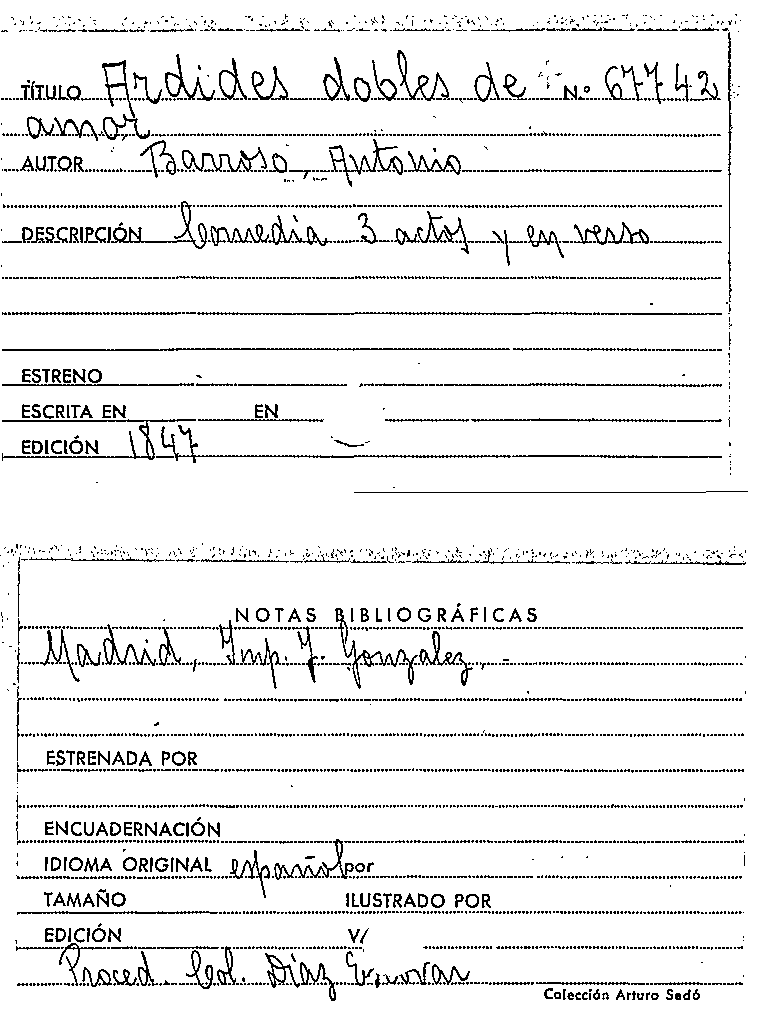 TÍTULO Ardides dobles de N.º 67742
amor
AUTOR Barroso, Antonio
DESCRIPCIÓN Comedia 3 actos y en verso
ESTRENO
ESCRITA EN EN
EDICIÓN 1847
NOTAS BIBLIOGRÁFICAS
Madrid, Imp. J. Gonzalez, -
ESTRENADA POR
ENCUADERNACIÓN
IDIOMA ORIGINAL español por
TAMAÑO ILUSTRADO POR
EDICIÓN V/
Proced. Col. Díaz
Colección Arturo Sedó